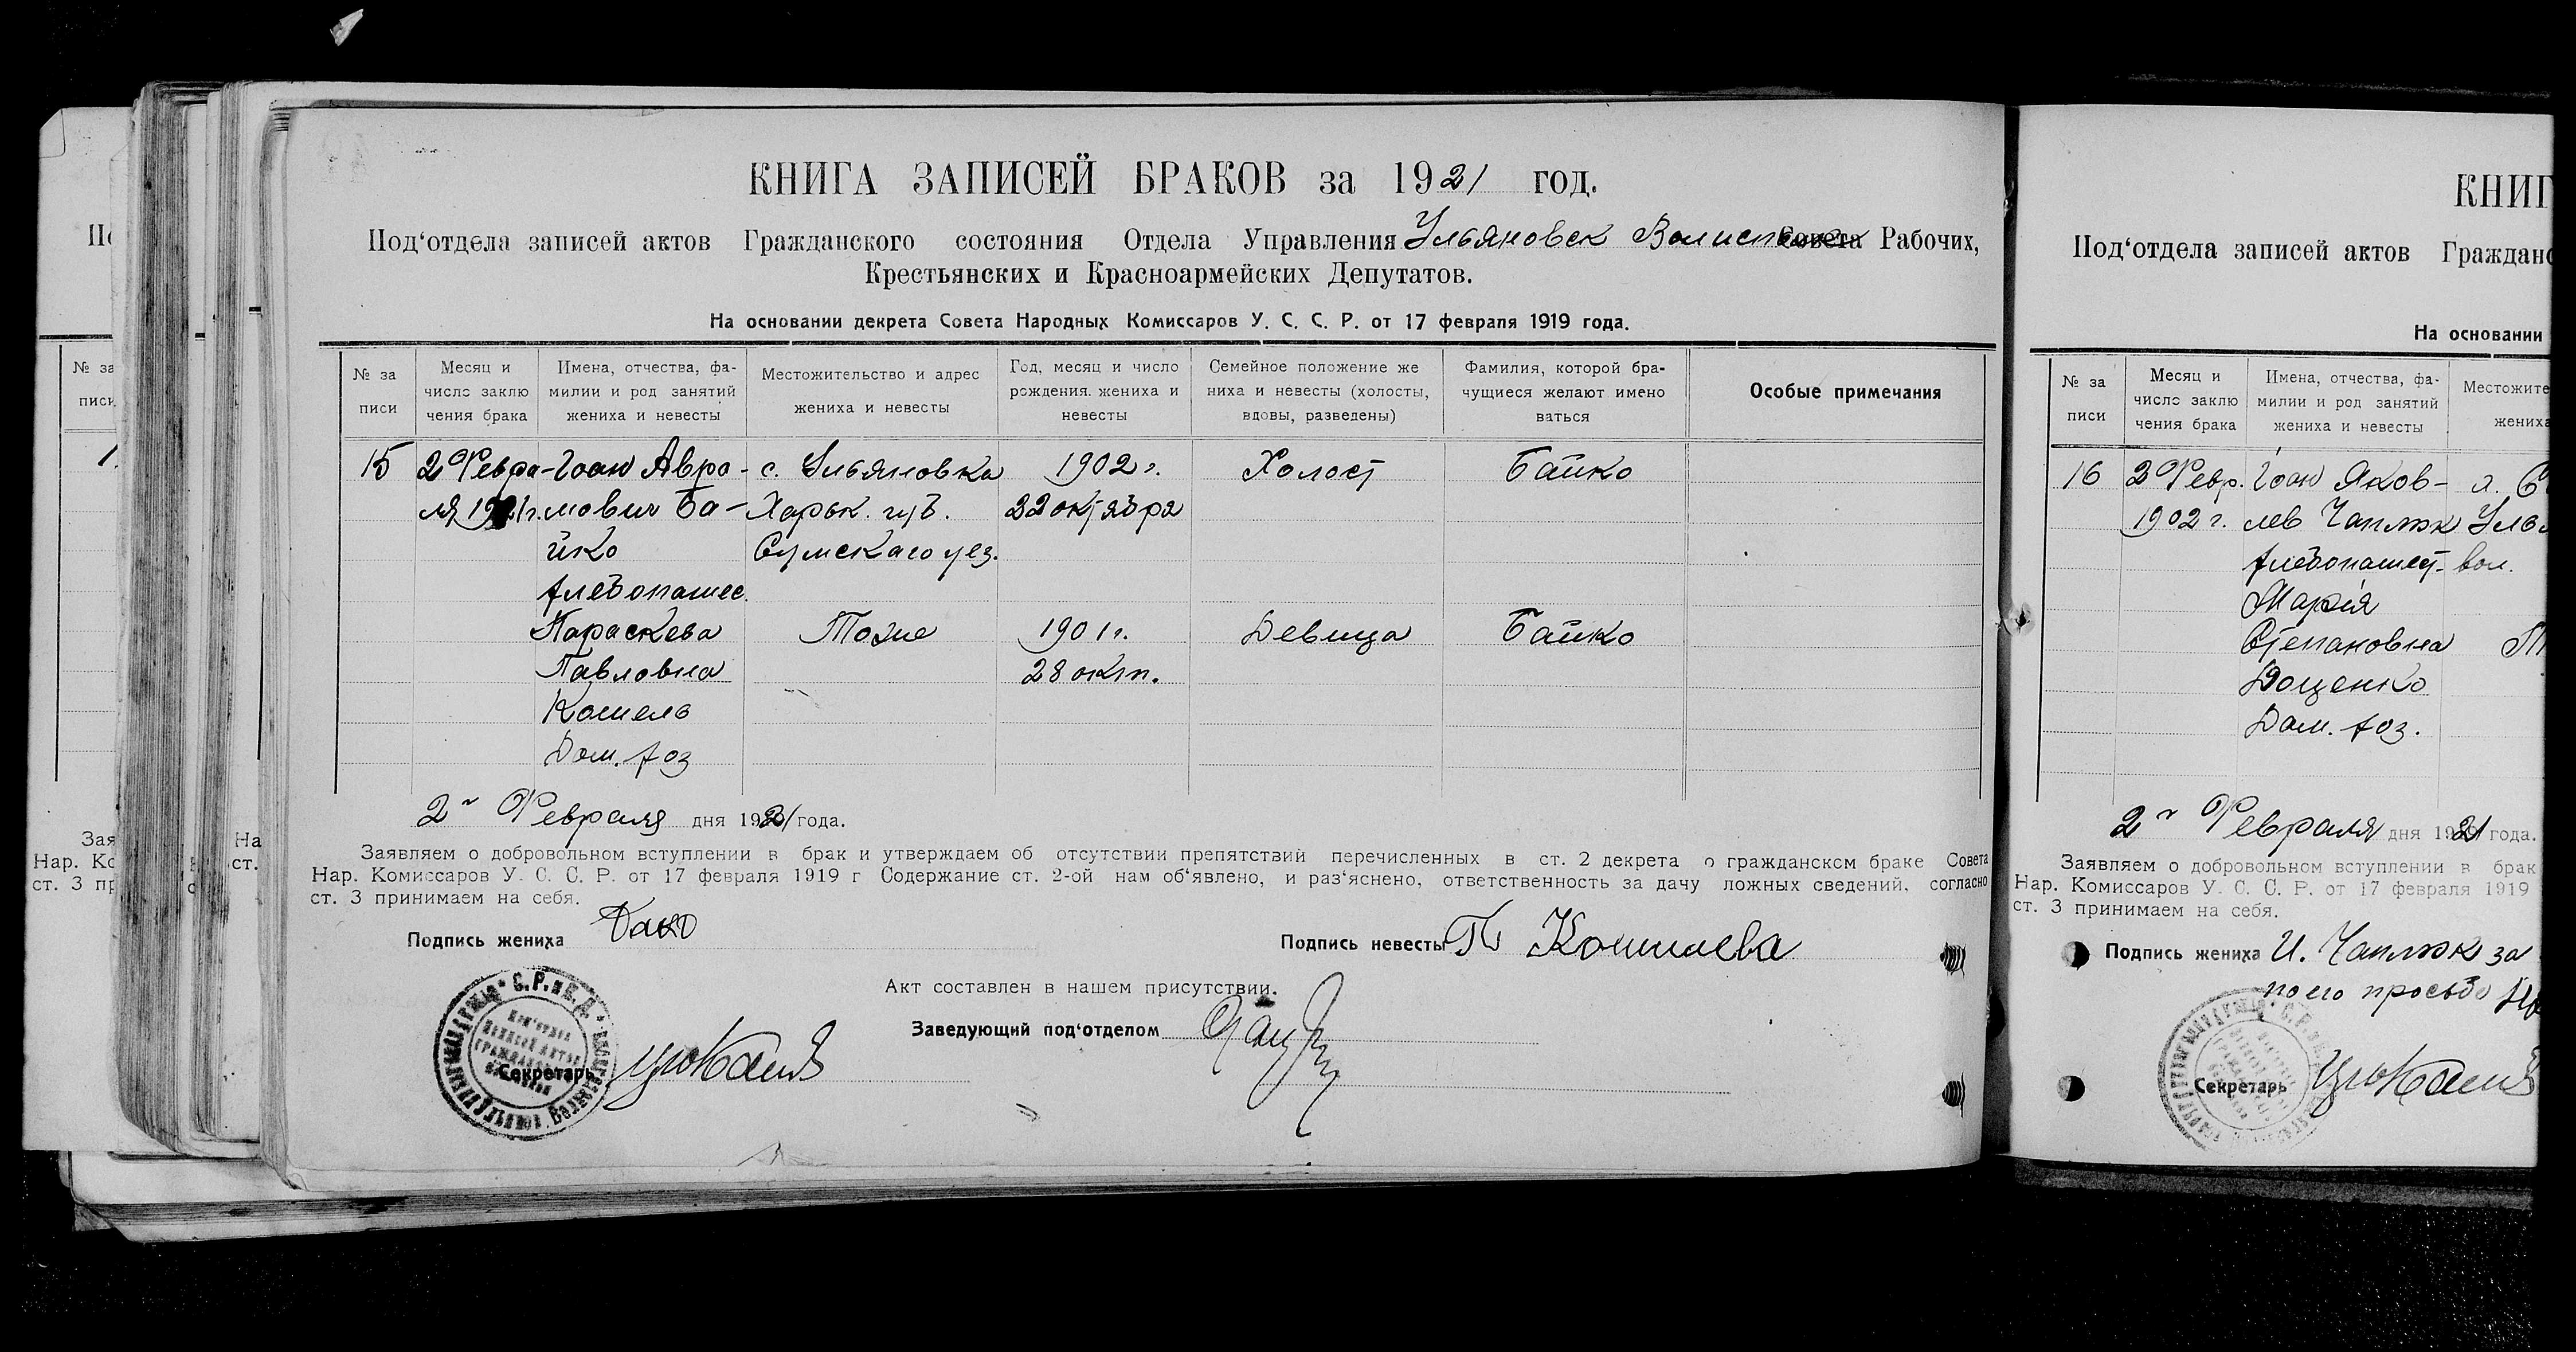 КНИГА ЗАПИСЕЙ БРАКОВ за 1921 год.
Под‘отдела записей актов Гражданского состояния Отдела Управления Ульяновск Совета Рабочих,
Крестьянских и Красноармейских Депутатов.
На основании декрета Совета Народных Комиссаров У. С. С. Р. от 17 февраля 1919 года.
№ за
писи
Месяц и
число заклю
чения брака
Имена, отчества, фа-
милии и род занятий
жениха и невесты
Местожительство и адрес
жениха и невесты
Год, месяц и число
рождения. жениха и
невесты
Семейное положение же
ниха и невесты (холосты,
вдовы, разведены)
Фамилия, которой бра-
чущиеся желают имено
ваться
Особые примечания
15 2 Февра- Іоан Авра- с. Ульяновка 1902 г. Холост Байко
ля 1921 г. мович Ба- Харьк. губ. 22 октября
йко Сумскаго уез.
хлебопашес.
Параскева Тоже 1901 г. Девица Байко
Павловна 28 окт.
Кошель
Дом. хоз
2 Февраля дня 1921 года.
Заявляем о добровольном вступлении в брак и утверждаем об отсутствии препятствий перечисленных в ст. 2 декрета о гражданском браке Совета
Нар. Комиссаров У. С. С. Р. от 17 февраля 1919 г Содержание ст. 2-ой нам об‘явлено, и раз‘яснено, ответственность за дачу ложных сведений, согласно
ст. 3 принимаем на себя.
Подпись жениха
Подпись невесты П Кошилева
Акт составлен в нашем присутствии.
Заведующий под‘отделом
Секретарь
КНИГ
Под‘отдела записей актов Гражданс
На основании
№ за
писи
Месяц и
число заклю
чения брака
Имена, отчества, фа-
милии и род занятий
жениха и невесты
Местожите
жениха
16 2 Февр. Іоан Яков-
1902 г. лев Чаплюк Улья
хлебопашест- вол.
Марія
Степановна
Доценко
Дом. хоз.
2 Февраля дня 1921 года.
Заявляем о добровольном вступлении в брак
Нар. Комиссаров У. С. С. Р. от 17 февраля 1919
ст. 3 принимаем на себя.
Подпись жениха И. Чаплюк за
по его просьбе
Секретарь
№ за
писи
Зая
Нар. Ко
ст. 3 пр
На
ст.